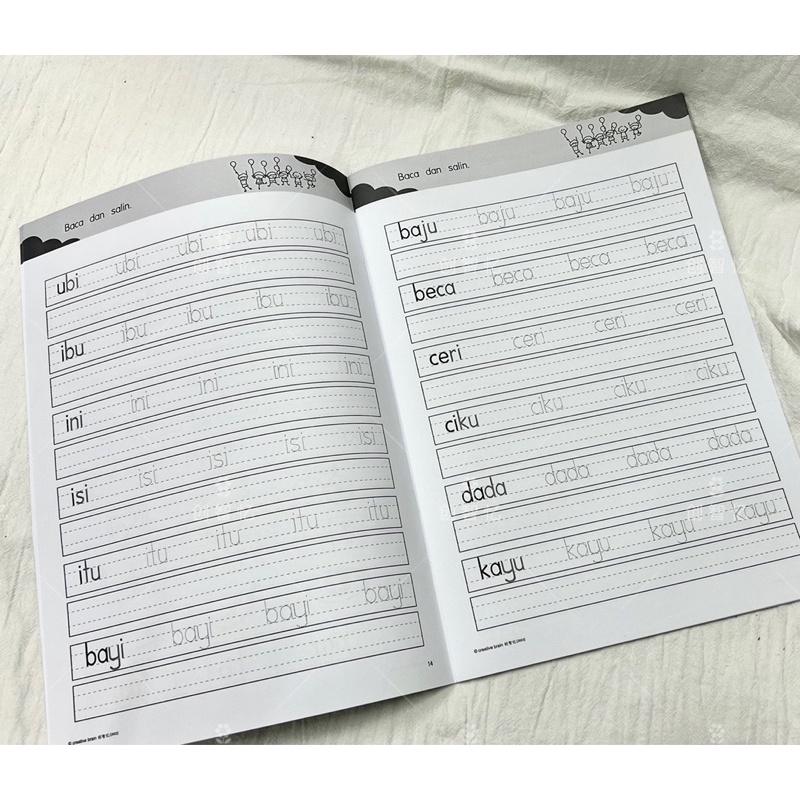 Baca dan salin.
ubi ubi ubi ubi ubi
ibu ibu ibu ibu ibu
ini ini ini ini ini
isi isi isi isi isi
itu itu itu itu itu
bayi bayi bayi bayi bayi
14
Baca dan salin.
baju baju baju baju
beca beca beca beca
ceri ceri ceri ceri
ciku ciku ciku ciku
dada dada dada dada
kayu kayu kayu kayu